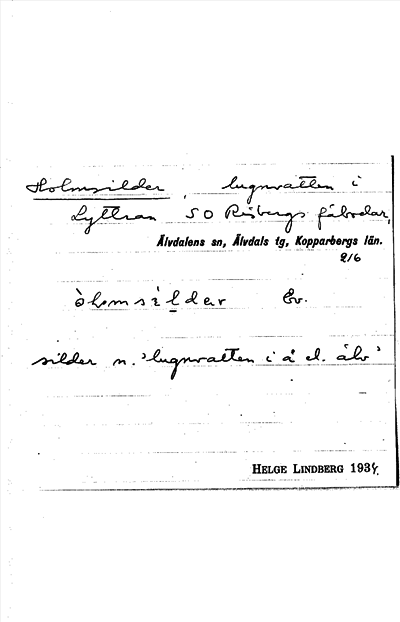 Holmsilder, lugnvatten i
Lyttran SO Risbergs fäbodar,
Älvdalens sn, Älvdals tg, Kopparbergs län.
2/6
òlomsìldɐr Ev.
silder n. 'lugnvatten i å el. älv'
HELGE LINDBERG 1934.